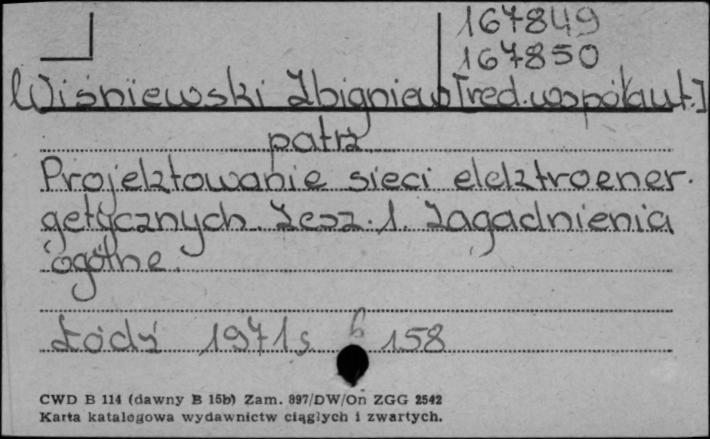 167849
167850
Wiśniewski Zbigniew [red. współaut.]
patrz
Projektowanie sieci elektroener-
getycznych. Zesz. 1. Zagadnienia
ogólne.
Łódź 1971 s. 158
CWD B 114 (dawny B 15b) Zam. 897/DW/On ZGG 2542
Karta katalogowa wydawnictw ciągłych i zwartych.